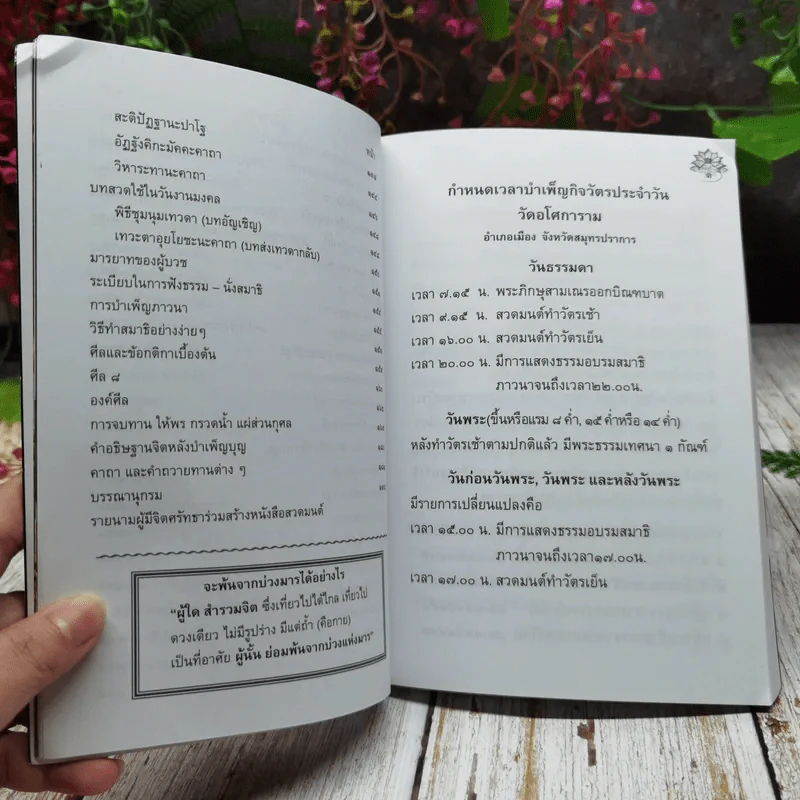 หน้า
สะติปัฏฐานะปาโฐ
อัฏฐังคิกะมัคคะคาถา
วิหาระทานะคาถา
บทสวดใช้ในวันงานมงคล
พิธีชุมนุมเทวดา (บทอัญเชิญ)
เทวะตาอุยโยชะนะคาถา (บทส่งเทวดากลับ)
มารยาทของผู้บวช
ระเบียบในการฟังธรรม – นั่งสมาธิ
การบำเพ็ญภาวนา
วิธีทำสมาธิอย่างง่ายๆ
ศีลและข้อกติกาเบื้องต้น
ศีล ๘
องค์ศีล
การจบทาน ให้พร กรวดน้ำ แผ่ส่วนกุศล
คำอธิษฐานจิตหลังบำเพ็ญบุญ
คาถา และคำถวายทานต่าง ๆ
บรรณานุกรม
รายนามผู้มีจิตศรัทธาร่วมสร้างหนังสือสวดมนต์
จะพ้นจากบ่วงมารได้อย่างไร
"ผู้ใด สำรวมจิต ซึ่งเที่ยวไปได้ไกล เที่ยวไป
ดวงเดียว ไม่มีรูปร่าง มีแต่ถ้ำ (คือกาย)
เป็นที่อาศัย ผู้นั้น ย่อมพ้นจากบ่วงแห่งมาร"
กำหนดเวลาบำเพ็ญกิจวัตรประจำวัน
วัดอโศการาม
อำเภอเมือง จังหวัดสมุทรปราการ
วันธรรมดา
เวลา ๗.๑๕ น. พระภิกษุสามเณรออกบิณฑบาต
เวลา ๙.๑๕ น. สวดมนต์ทำวัตรเช้า
เวลา ๑๖.๐๐ น. สวดมนต์ทำวัตรเย็น
เวลา ๒๐.๐๐ น. มีการแสดงธรรมอบรมสมาธิ
ภาวนาจนถึงเวลา๒๒.๐๐น.
วันพระ(ขึ้นหรือแรม ๘ ค่ำ, ๑๕ ค่ำหรือ ๑๔ ค่ำ)
หลังทำวัตรเช้าตามปกติแล้ว มีพระธรรมเทศนา ๑ กัณฑ์
วันก่อนวันพระ, วันพระ และหลังวันพระ
มีรายการเปลี่ยนแปลงคือ
เวลา ๑๕.๐๐ น. มีการแสดงธรรมอบรมสมาธิ
ภาวนาจนถึงเวลา๑๗.๐๐น.
เวลา ๑๗.๐๐ น. สวดมนต์ทำวัตรเย็น